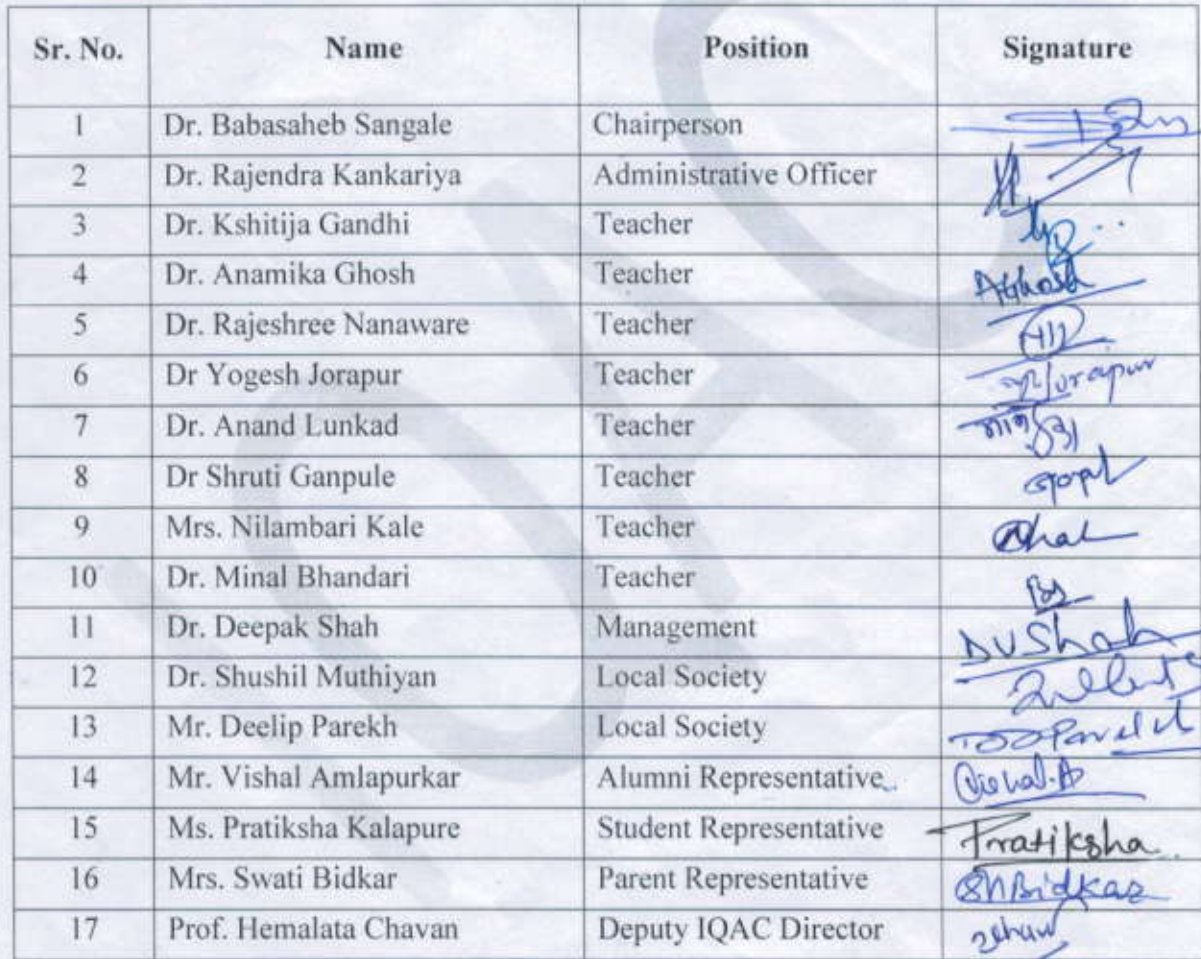 Sr. No. Name Position Signature
1 Dr. Babasaheb Sangale Chairperson
2 Dr. Rajendra Kankariya Administrative Officer
3 Dr. Kshitija Gandhi Teacher
4 Dr. Anamika Ghosh Teacher AGhosh
5 Dr. Rajeshree Nanaware Teacher
6 Dr Yogesh Jorapur Teacher
7 Dr. Anand Lunkad Teacher
8 Dr Shruti Ganpule Teacher
9 Mrs. Nilambari Kale Teacher
10 Dr. Minal Bhandari Teacher
11 Dr. Deepak Shah Management DVShah
12 Dr. Shushil Muthiyan Local Society
13 Mr. Deelip Parekh Local Society
14 Mr. Vishal Amlapurkar Alumni Representative Vishal.A
15 Ms. Pratiksha Kalapure Student Representative Pratiksha
16 Mrs. Swati Bidkar Parent Representative SNBidkar
17 Prof. Hemalata Chavan Deputy IQAC Director